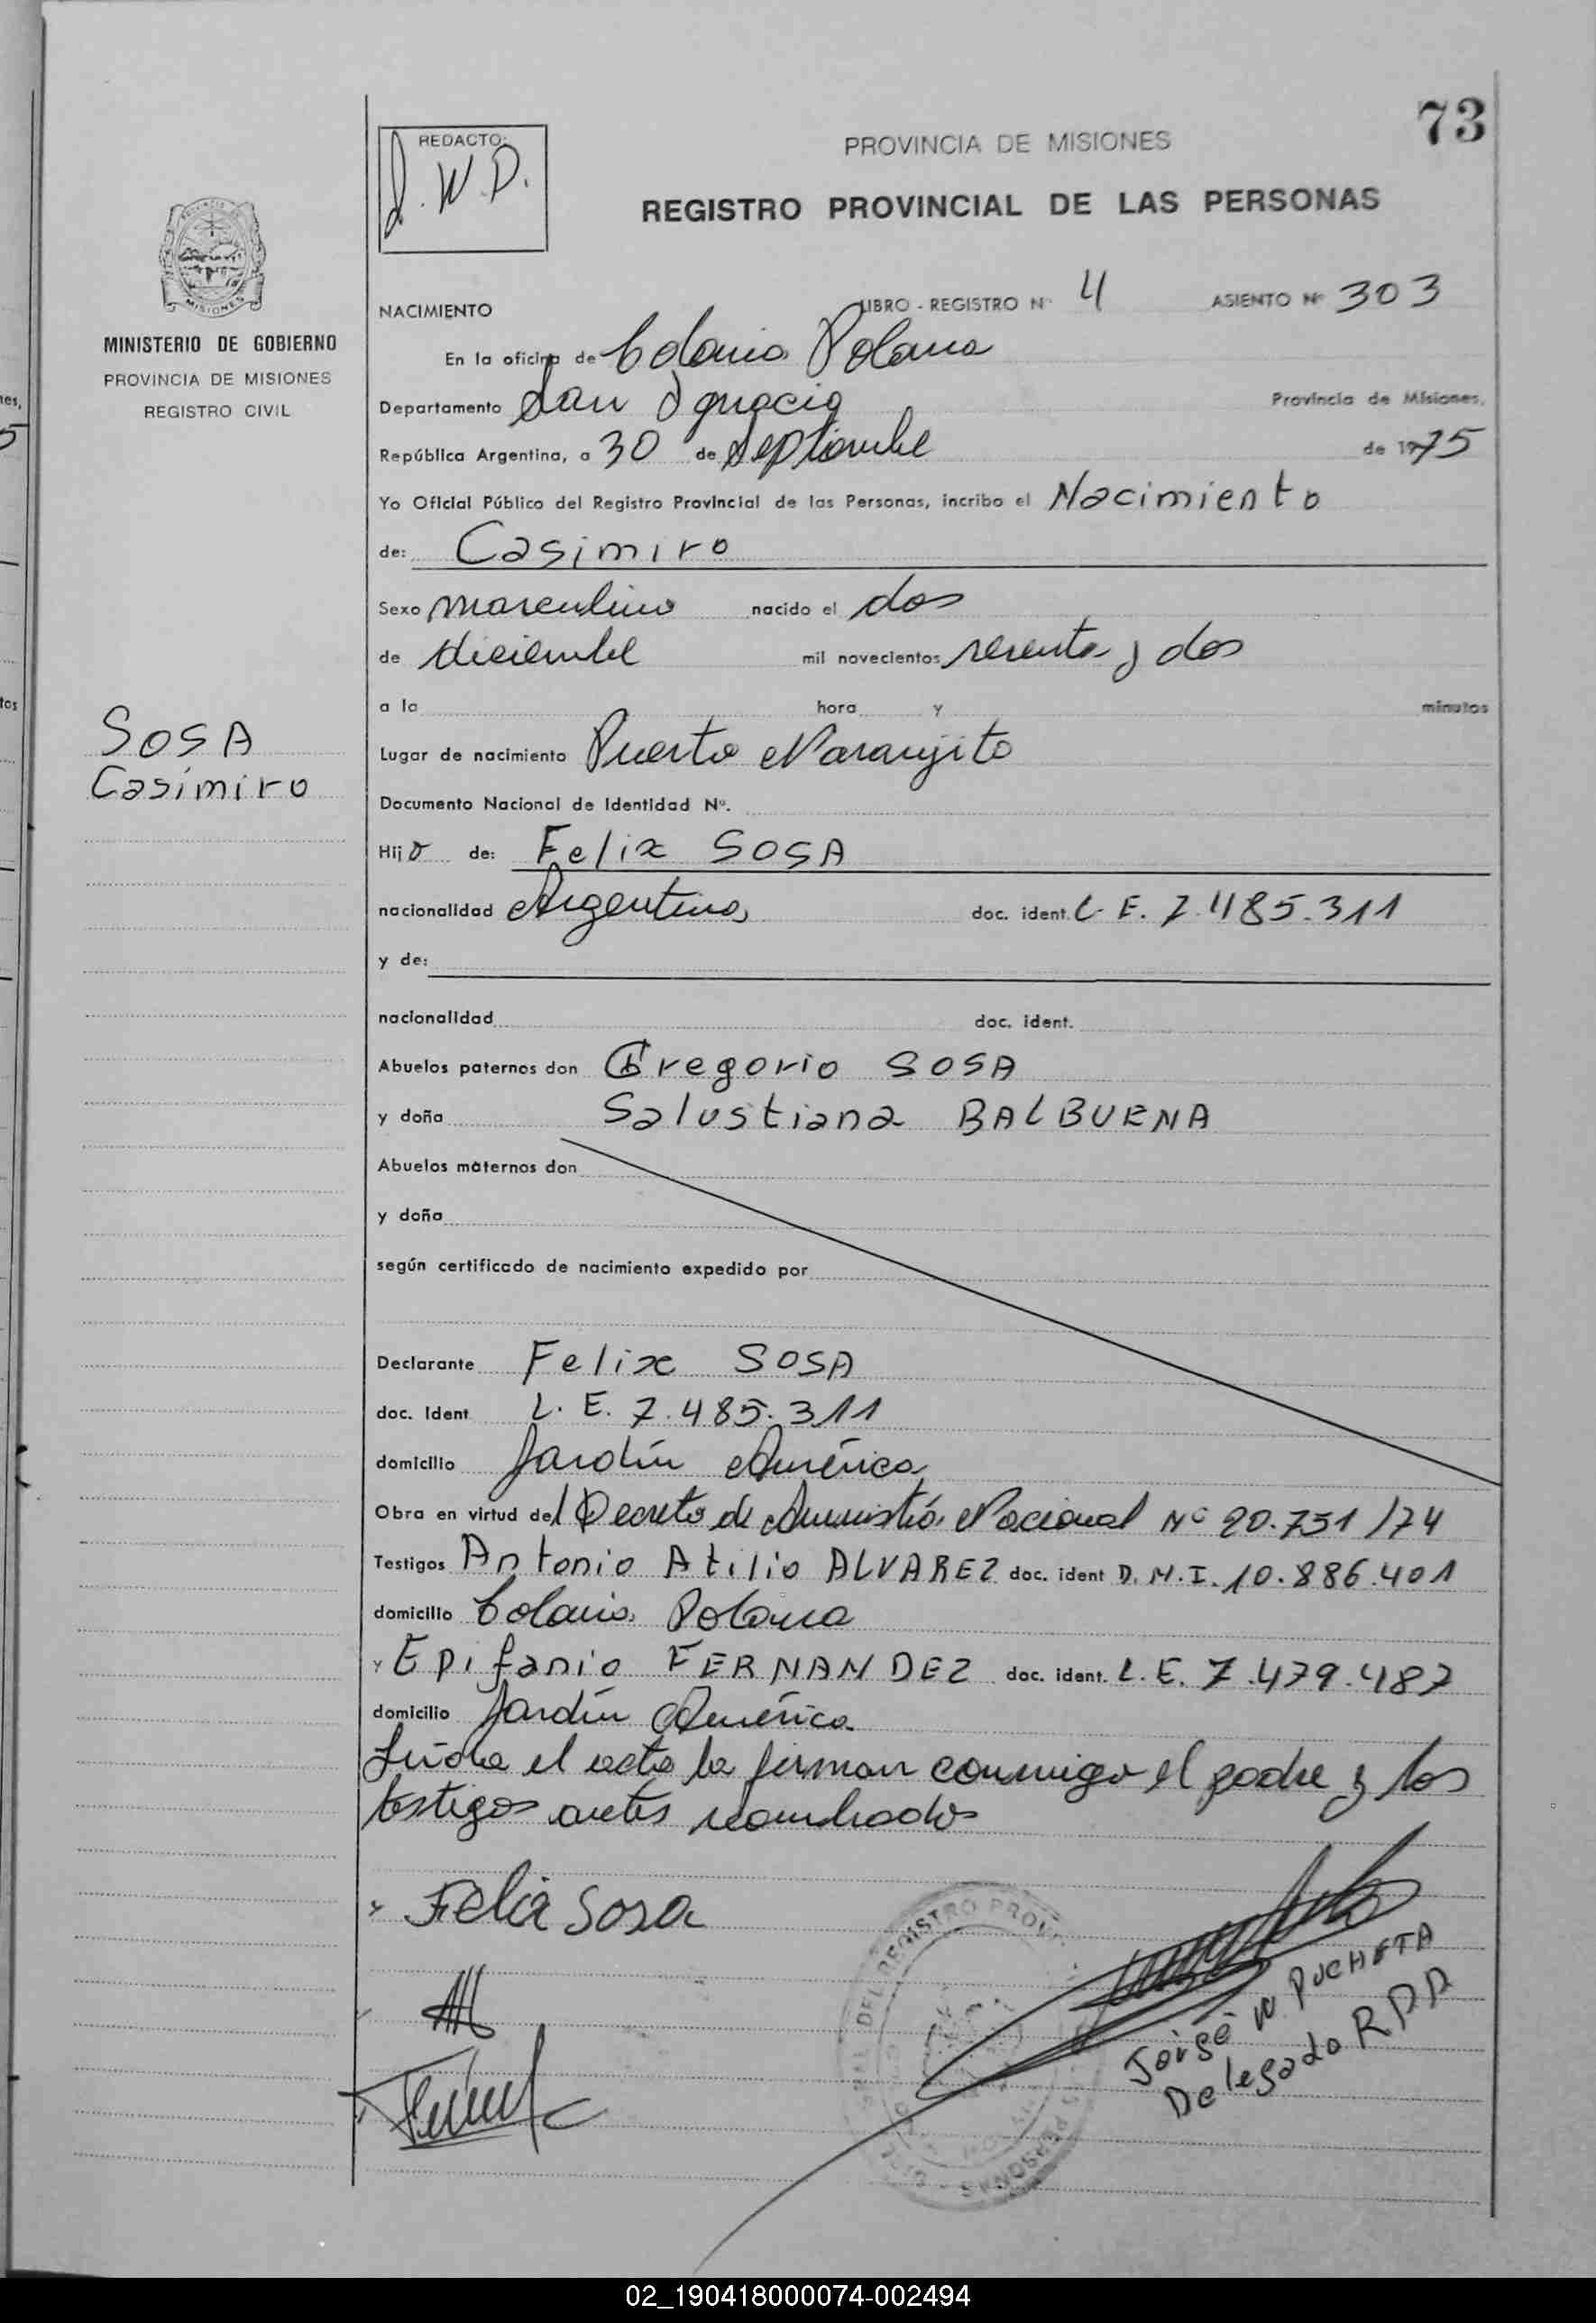 73
REDACTO:
J. W. P.
PROVINCIA DE MISIONES
REGISTRO PROVINCIAL DE LAS PERSONAS
MISIONES
MINISTERIO DE GOBIERNO
PROVINCIA DE MISIONES
REGISTRO CIVIL
NACIMIENTO LIBRO - REGISTRO Nº 4 ASIENTO Nº 303
En la oficina de Colonia Polana
Departamento San Ignacio Provincia de Misiones,
República Argentina, a 30 de Septiembre de 1975
Yo Oficial Público del Registro Provincial de las Personas, incribo el Nacimiento
de: Casimiro
Sexo masculino nacido el dos
de diciembre mil novecientos sesenta y dos
a la hora y minutos
SOSA
Casimiro
Lugar de nacimiento Puerto Naranjito
Documento Nacional de Identidad Nº.
Hijo de: Felix SOSA
nacionalidad Argentina doc. ident. L. E. 7.485.311
y de:
nacionalidad doc. ident.
Abuelos paternos don Gregorio SOSA
y doña Salustiana BALBUENA
Abuelos maternos don
y doña
según certificado de nacimiento expedido por
Declarante Felix SOSA
doc. Ident L. E. 7.485.311
domicilio Jardín América
Obra en virtud del Decreto de Amnistía Nacional Nº 20.751/74
Testigos Antonio Atilio ALVAREZ doc. ident D.N.I. 10.886.401
domicilio Colonia Polana
y Epifanio FERNANDEZ doc. ident. L. E. 7.479.487
domicilio Jardín América
Leída el acta la firman conmigo el padre y los
testigos antes nombrados
Felix Sosa
DEL REGISTRO PROV.
PERSONAS
Jorge W PUCHETA
Delegado RPP
02_190418000074-002494